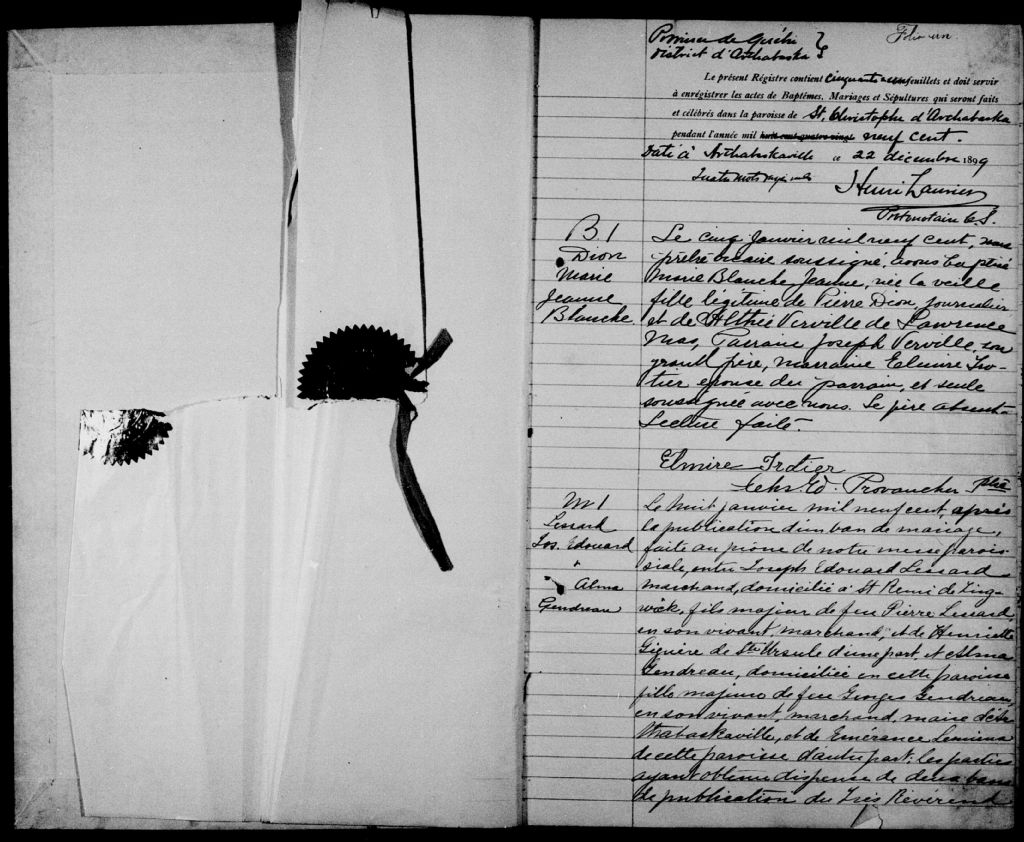 Folio un.
Province de Québec
District d'Arthabaska
Le présent Régistre contient cinquante feuillets et doit servir
à enrégistrer les actes de Baptêmes, Mariages et Sépultures qui seront faits
et célébrés dans la paroisse de St. Christophe d'Arthabaska
pendant l'année mil huit cent quatre-vingt neuf cent.
Daté à Arthabaskaville ce 22 décembre 1899
Quatre mots rayés nuls
Henri Laurier
Protonotaire C. S.
B 1
Dion
Marie
Jeanne
Blanche
Le cinq Janvier mil neuf cent, nous
prêtre vicaire soussigné, avons baptisé
Marie Blanche Jeanne, née la veille
fille légitime de Pierre Dion, journalier
et de Verville de Lawrence
Mas, Parrain Joseph Verville, son
grand père, marraine Elmire Tro-
tier épouse du parrain, et seule
soussignée avec nous. Le père absent.
Lecture faite.
Elmire Trotier
Ed. Provancher ptre
M 1
Lessard
Jos. Edouard
&
Alma
Gendreau
Le huit janvier mil neuf cent, après
la publication d'un ban de mariage,
faite au prône de notre messe parois
siale, entre Joseph Edouard Lessard
marchand, domicilié à St Remi de Ting-
wick, fils majeur de feu Pierre Lessard
en son vivant, marchand, et de Henriette
Giguère de Ste Ursule d'une part, et Alma
Gendreau, domiciliée en cette paroisse
fille majeure de feu Georges Gendreau,
en son vivant, marchand, maire d'Ar
thabaskaville, et de Emérance Lemieux
de cette paroisse d'autre part; les parties
ayant obtenu dispense de deux bans
de publication du Très Révérend